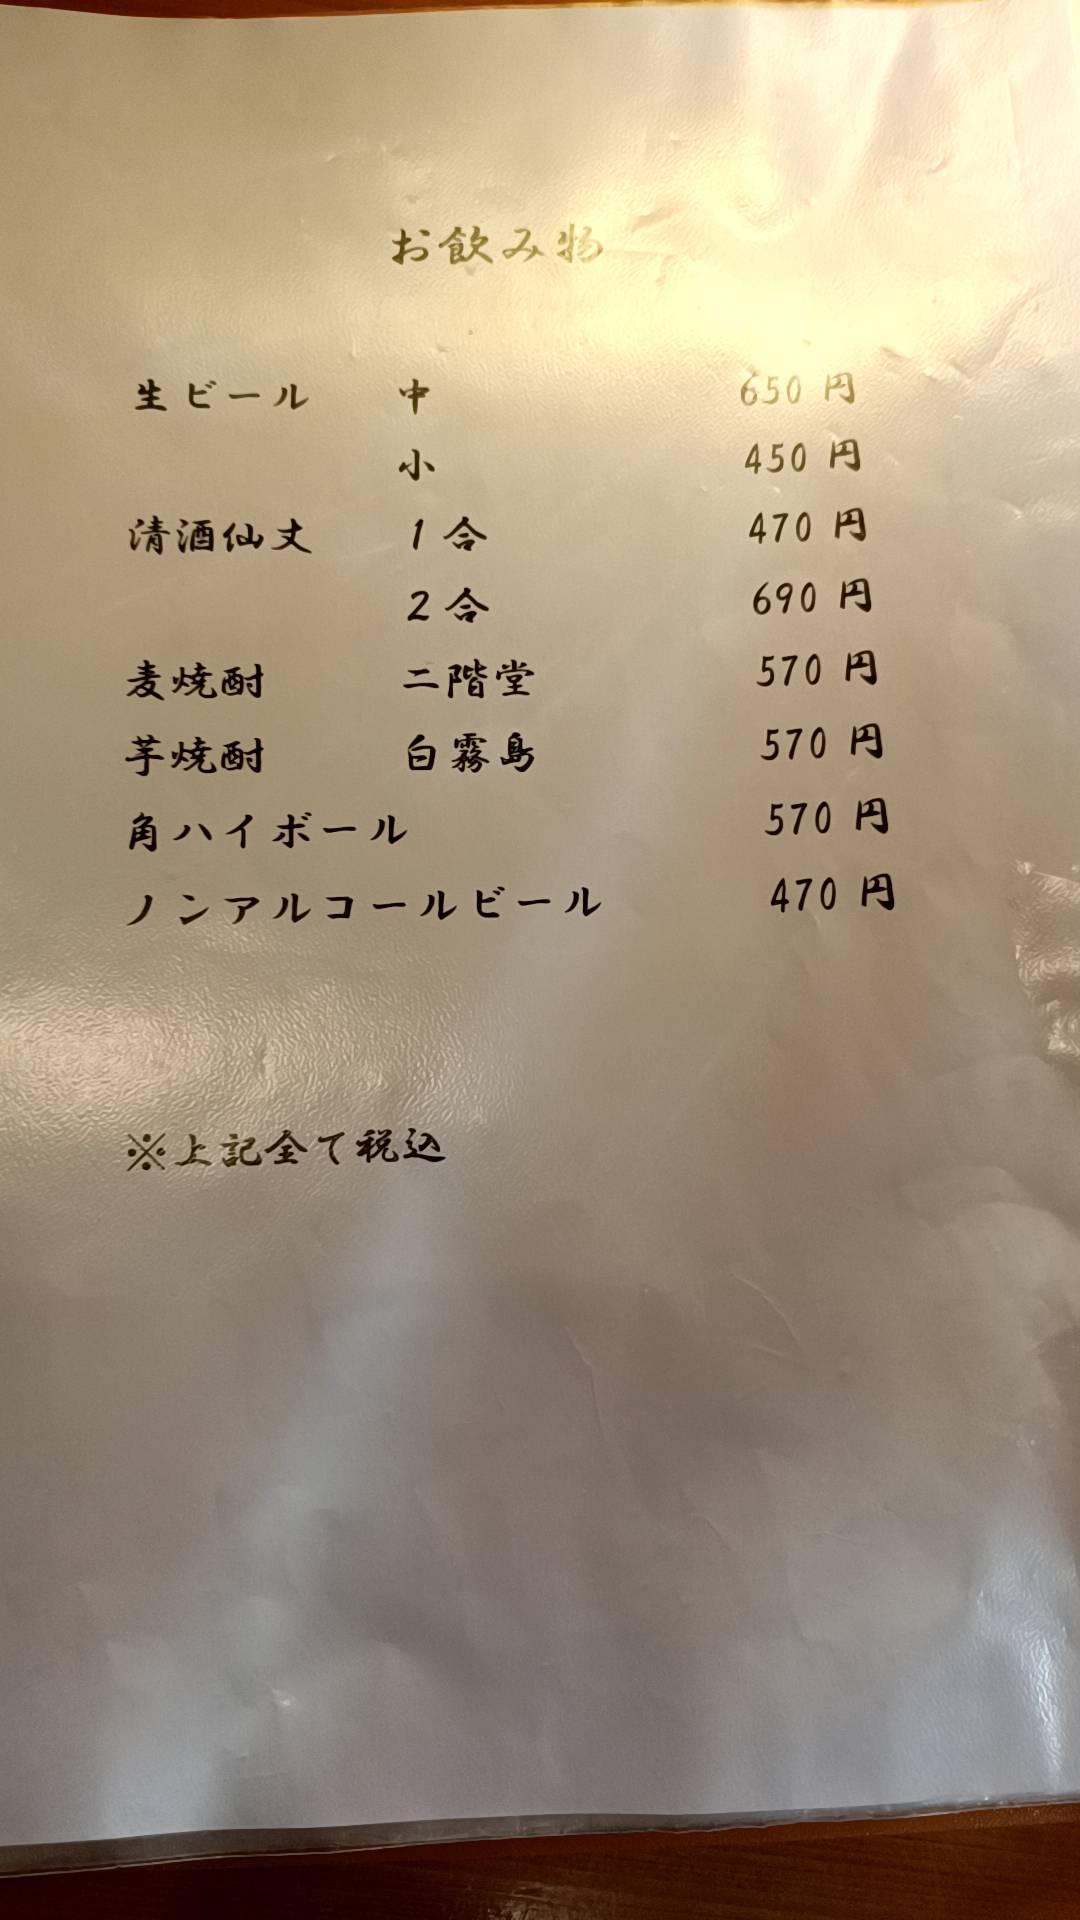 お飲み物
生ビール 中 650円
小 450円
清酒仙丈 1合 470円
2合 690円
麦焼酎 二階堂 570円
芋焼酎 白霧島 570円
角ハイボール 570円
ノンアルコールビール 470円
※上記全て税込